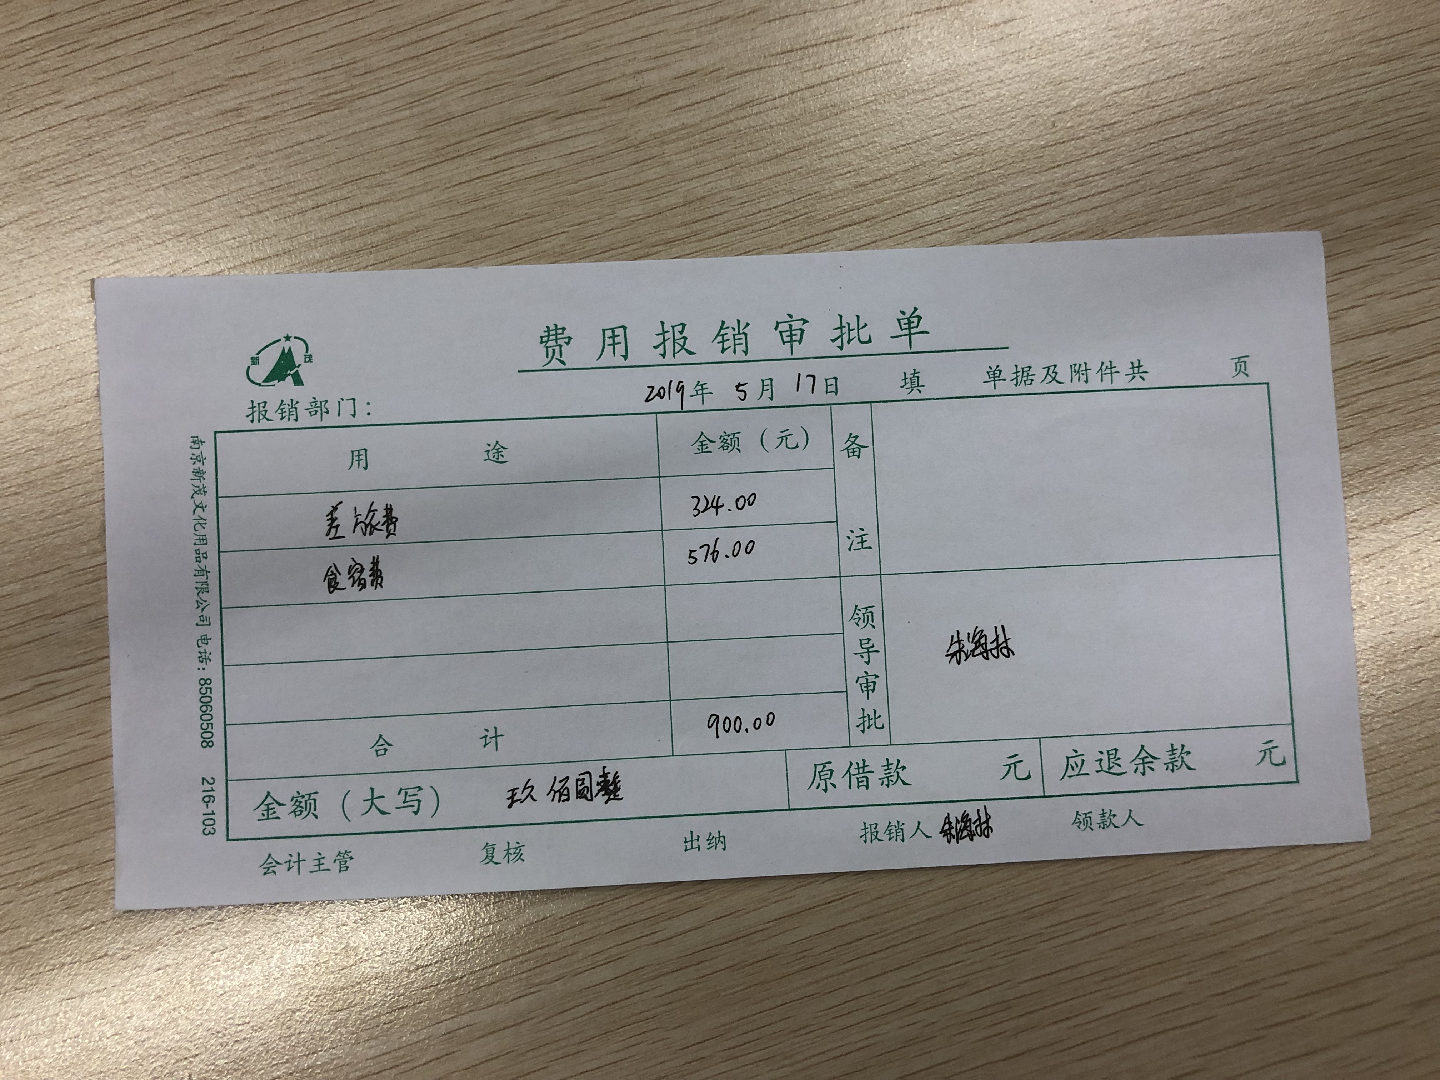 费用报销审批单
新 茂
2019年 5月 17日 填 单据及附件共 页
报销部门：
用 途 金额（元） 备注
差旅费 324.00
食宿费 576.00
领导审批 朱海林
合 计 900.00
金额（大写） 玖佰圆整 原借款 元 应退余款 元
会计主管 复核 出纳 报销人 朱海林 领款人
南京新茂文化用品有限公司 电话：85060508 216-103